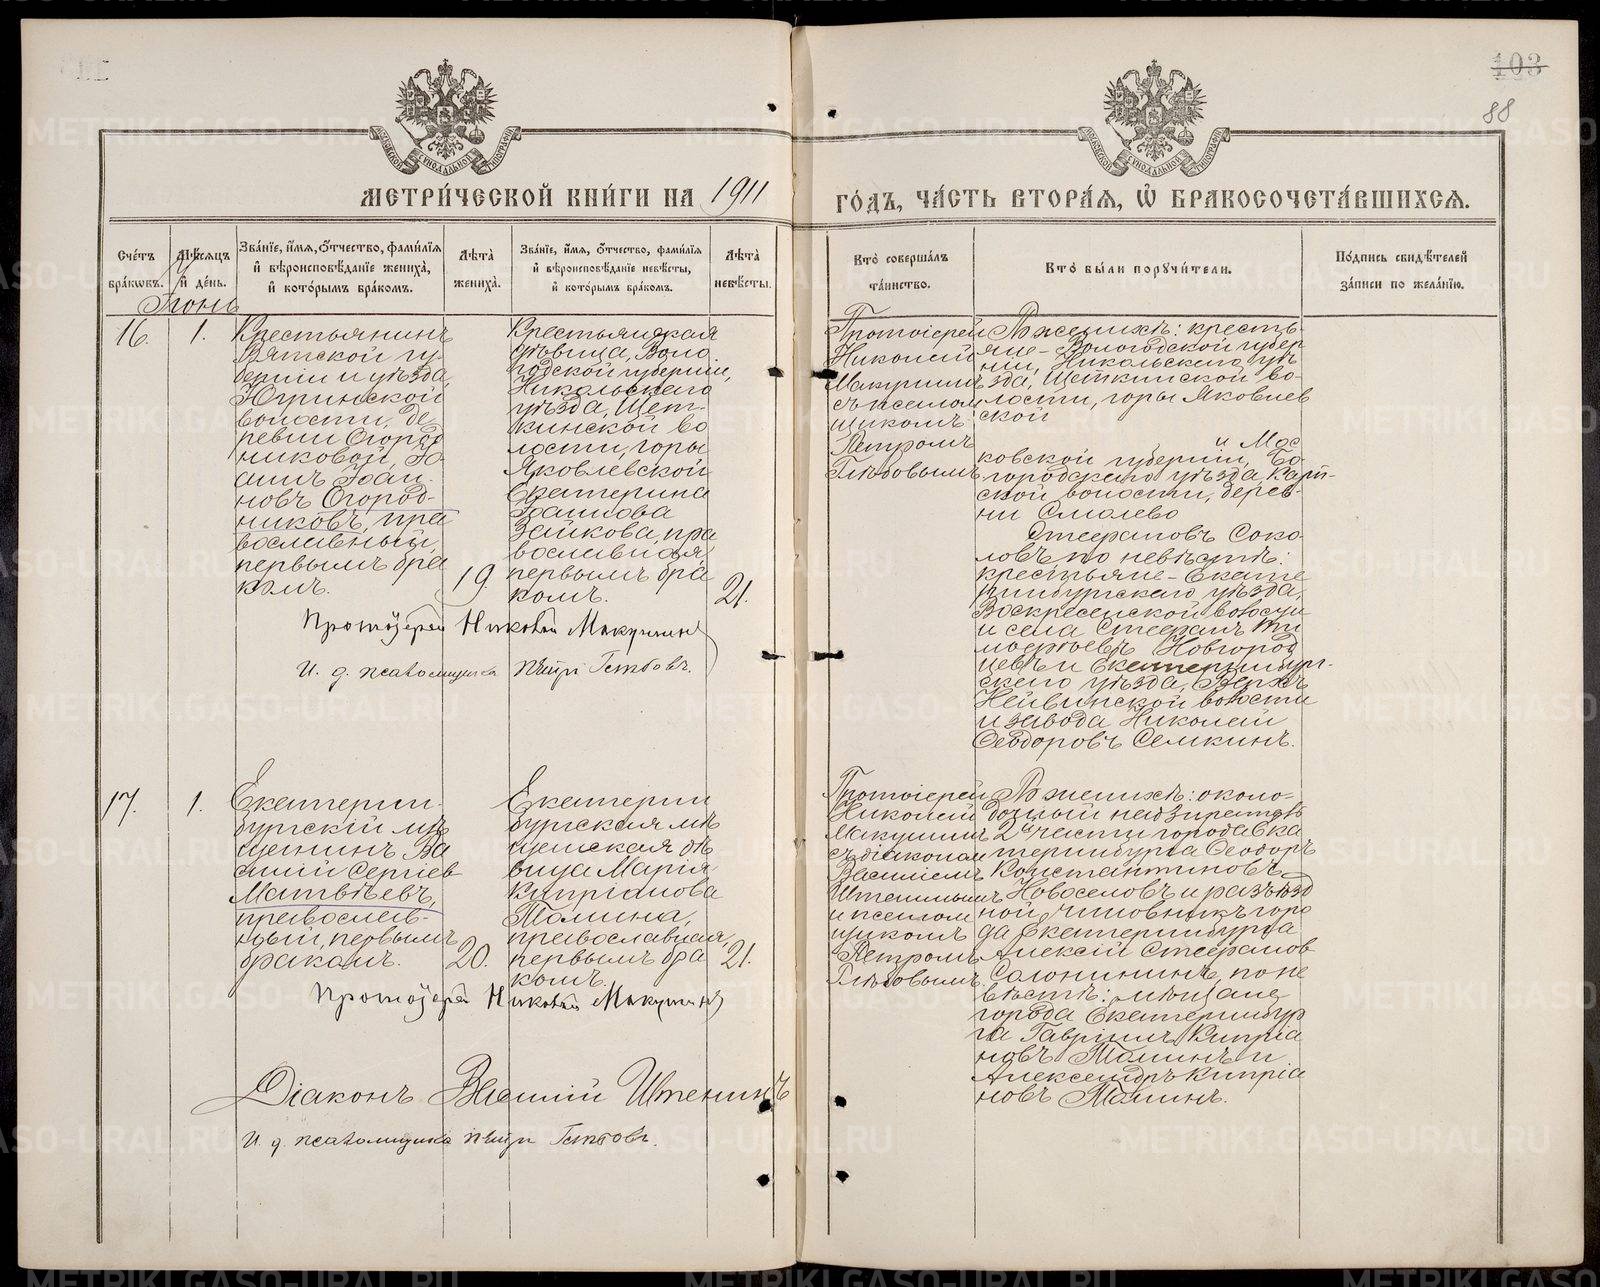 103
88
МЕТРИ́ЧЕСКОЙ КНИ́ГИ НА 1911 ГО́ДЪ, ЧА́СТЬ ВТОРА́Я, Ѡ҆ БРАКОСОЧЕТА́ВШИХСЯ.
Сче́тъ бра́кѡвъ.
Мѣ́сяцъ и҆ де́нь.
Зва́нїе, и҆́мя, ѻ҆́тчество, фами́лїя и҆ вѣроисповѣ́данїе жениха̀, и҆ кото́рымъ бра́комъ.
Лѣ́та жениха̀.
Зва́нїе, и҆́мя, ѻ҆́тчество, фами́лїя и҆ вѣроисповѣ́данїе невѣ́сты, и҆ кото́рымъ бра́комъ.
Лѣ́та невѣ́сты.
Кто̀ соверша́лъ та́инство.
Кто̀ бы́ли поручи́тели.
По́дпись свидѣ́телей за́писи по жела́нїю.
Іюнь
16.
1.
Крестьянинъ
Вятской гу-
берніи и уѣзда,
Югринской
волости, де
ревни Огород
никовой, Іо
аннъ Іоан-
новъ Огород-
никовъ, пра
вославный,
первымъ бра
комъ.
19.
Крестьянская
дѣвица, Воло-
годской губерніи,
Никольскаго
уѣзда, Щет-
кинской во
лости, горы
Яковлевской
Екатерина
Іоаннова
Зайкова, пра
вославная,
первымъ бра
комъ.
21.
Протоіерей
Николай
Макушинъ
съ псалом
щикомъ
Петромъ
Глѣбовымъ
По женихѣ: кресть-
яне - Вологодской губер
ніи, Никольскаго уѣ
зда, Щеткинской во-
лости, горы Яковлев
ской
и Мос
ковской губерніи, Бо-
городскаго уѣзда, Карп-
ской волости, дерев-
ни Смолево
Стефановъ Соко-
ловъ по невѣстѣ:
крестьяне - Екате
ринбургскаго уѣзда,
Воскресенской волости
и села Стефанъ Ти
мофеевъ Новгород
цевъ и Екатеринбург-
скаго уѣзда, Верхъ
Нейвинской волости
и завода Николай
Ѳеодоровъ Семкинъ.
Протоіерей Николай Макушинъ
И. д. псаломщика Петръ Глѣбовъ.
17.
1.
Екатерин-
бургскій мѣ
щанинъ Ва
силій Сергіев
Матвѣевъ,
православ-
ный, первымъ
бракомъ.
20.
Екатерин
бургская мѣ
щанская дѣ
вица Марія
Кипріанова
Томина,
православная,
первымъ бра
комъ.
21.
Протоіерей
Николай
Макушинъ
съ діакономъ
Василіемъ
Штенинымъ
и псалом
щикомъ
Петромъ
Глѣбовымъ.
По женихѣ: около-
дочный надзиратель
2й части города Ека
теринбурга Ѳеодоръ
Константиновъ
Новоселовъ и разъѣзд
ной чиновникъ горо
да Екатеринбурга
Алексій Стефанов
Солонининъ, по не
вѣстѣ: мѣщане
города Екатеринбур
га Гавріилъ Кипріа
новъ Томинъ и
Александръ Кипріа
новъ Томинъ.
Протоіерей Николай Макушинъ
Діаконъ Василій Штенинъ
И. д. псаломщика Петръ Глѣбовъ.
METRIKI.GASO-URAL.RU